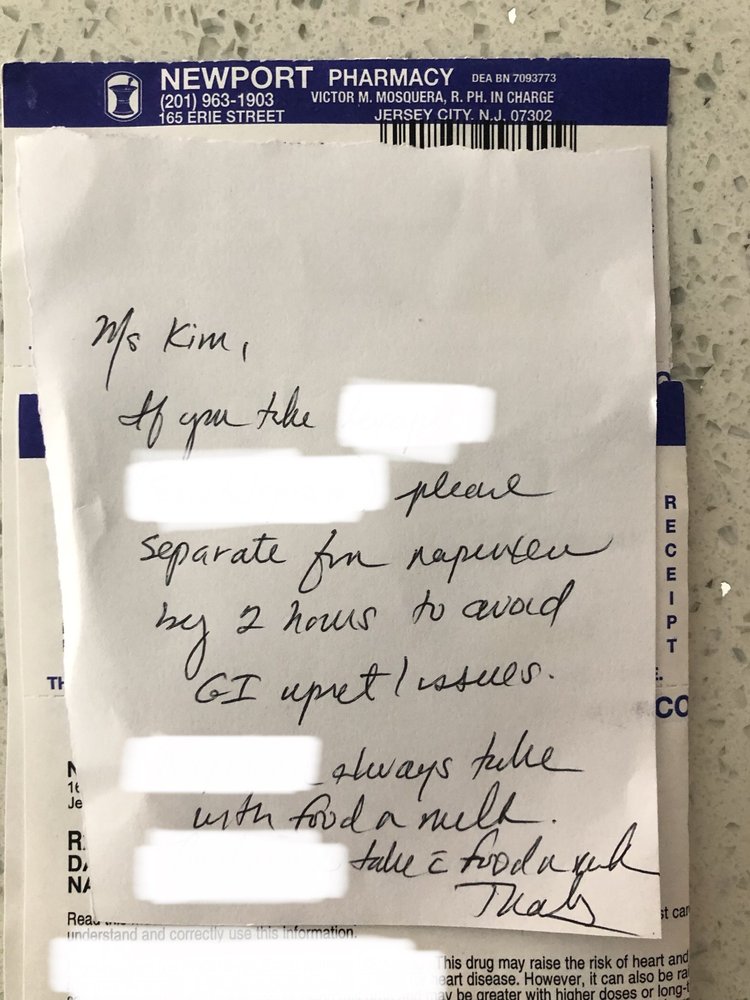 NEWPORT PHARMACY DEA BN 7093773
(201) 963-1903 VICTOR M. MOSQUERA, R. PH. IN CHARGE
165 ERIE STREET JERSEY CITY, N.J. 07302
Ms Kim,
If you take
please
separate from naproxen
by 2 hours to avoid
GI upset / issues.
always take
with food or milk.
take c̄ food or milk
RECEIPT
TH
E.
CO
N
16
Je
R
DA
NA
Read
st car
understand and correctly use this information.
This drug may raise the risk of heart and
eart disease. However, it can also be ra
may be greater with higher doses or long-t